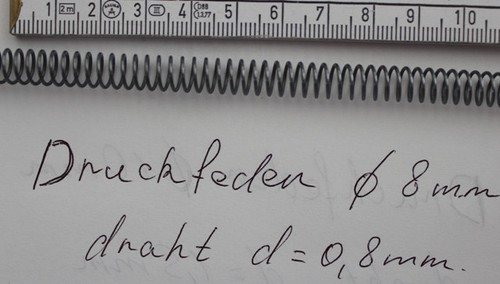 1 2m 2 3 III 4 5 6 7 8 9 10
Druckfeder ϕ 8 mm
draht d = 0,8 mm.